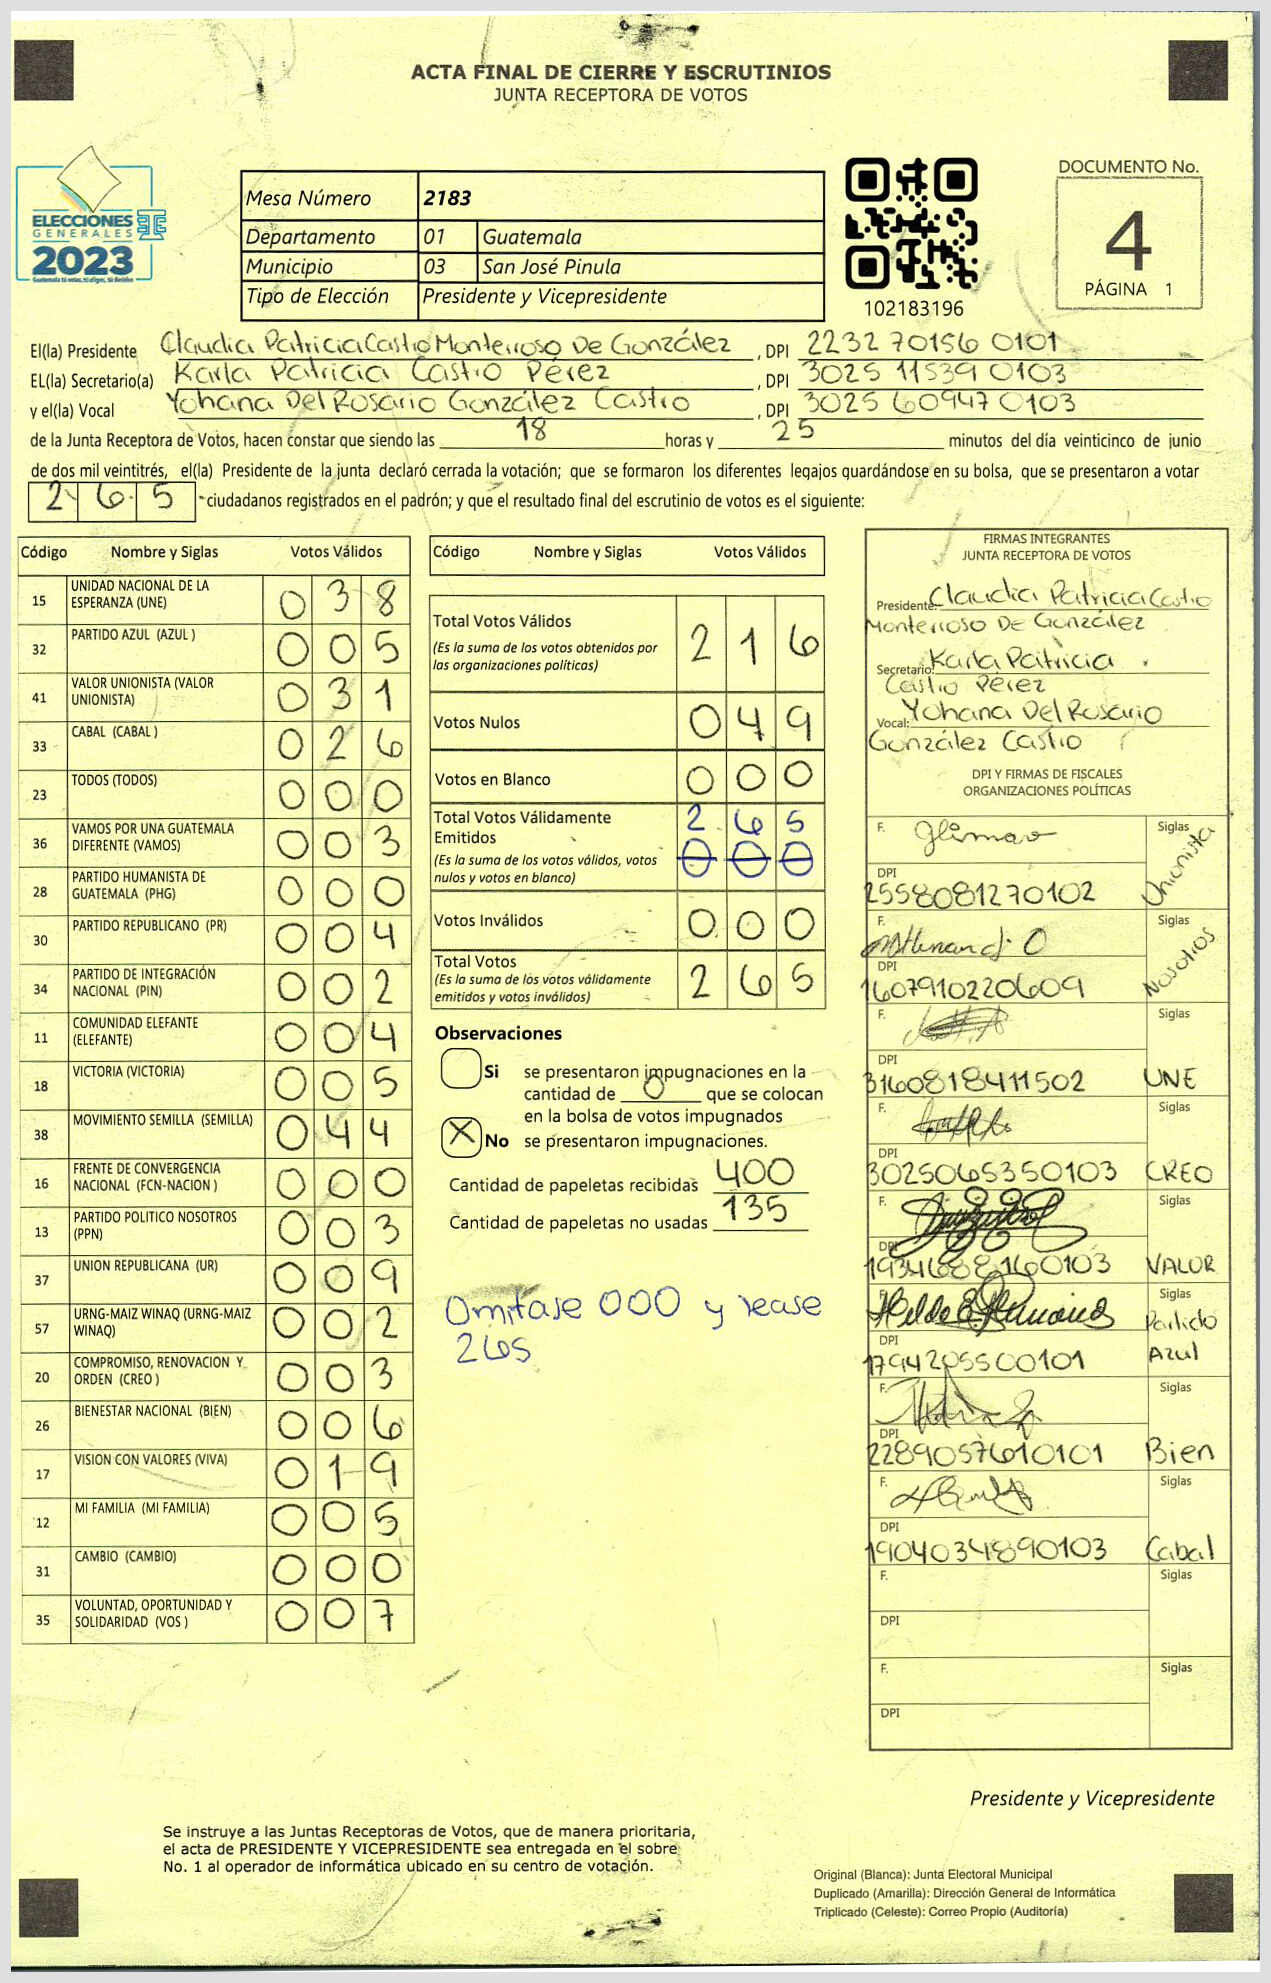 ACTA FINAL DE CIERRE Y ESCRUTINIOS
JUNTA RECEPTORA DE VOTOS
ELECCIONES
GENERALES
2023
Mesa Número 2183
Departamento 01 Guatemala
Municipio 03 San José Pinula
Tipo de Elección Presidente y Vicepresidente
102183196
DOCUMENTO No.
4
PÁGINA 1
El(la) Presidente Claudia Patricia Castro Monterroso De González , DPI 2232 70156 0101
EL(la) Secretario(a) Karla Patricia Castro Pérez , DPI 3025 11539 0103
y el(la) Vocal Yohana Del Rosario González Castro , DPI 3025 60947 0103
de la Junta Receptora de Votos, hacen constar que siendo las 18 horas y 25 minutos del día veinticinco de junio
de dos mil veintitrés, el(la) Presidente de la junta declaró cerrada la votación; que se formaron los diferentes legajos guardándose en su bolsa, que se presentaron a votar
265 ciudadanos registrados en el padrón; y que el resultado final del escrutinio de votos es el siguiente:
Código Nombre y Siglas Votos Válidos
15 UNIDAD NACIONAL DE LA ESPERANZA (UNE) 038
32 PARTIDO AZUL (AZUL ) 005
41 VALOR UNIONISTA (VALOR UNIONISTA) 031
33 CABAL (CABAL ) 026
23 TODOS (TODOS) 000
36 VAMOS POR UNA GUATEMALA DIFERENTE (VAMOS) 003
28 PARTIDO HUMANISTA DE GUATEMALA (PHG) 000
30 PARTIDO REPUBLICANO (PR) 004
34 PARTIDO DE INTEGRACIÓN NACIONAL (PIN) 002
11 COMUNIDAD ELEFANTE (ELEFANTE) 004
18 VICTORIA (VICTORIA) 005
38 MOVIMIENTO SEMILLA (SEMILLA) 044
16 FRENTE DE CONVERGENCIA NACIONAL (FCN-NACION ) 000
13 PARTIDO POLITICO NOSOTROS (PPN) 003
37 UNION REPUBLICANA (UR) 009
57 URNG-MAIZ WINAQ (URNG-MAIZ WINAQ) 002
20 COMPROMISO, RENOVACION Y ORDEN (CREO ) 003
26 BIENESTAR NACIONAL (BIEN) 006
17 VISION CON VALORES (VIVA) 019
12 MI FAMILIA (MI FAMILIA) 005
31 CAMBIO (CAMBIO) 000
35 VOLUNTAD, OPORTUNIDAD Y SOLIDARIDAD (VOS ) 007
Código Nombre y Siglas Votos Válidos
Total Votos Válidos 216
(Es la suma de los votos obtenidos por
las organizaciones políticas)
Votos Nulos 049
Votos en Blanco 000
Total Votos Válidamente 265
Emitidos 000
(Es la suma de los votos válidos, votos
nulos y votos en blanco)
Votos Inválidos 000
Total Votos 265
(Es la suma de los votos válidamente
emitidos y votos inválidos)
Observaciones
Si se presentaron impugnaciones en la
cantidad de 0 que se colocan
en la bolsa de votos impugnados
X No se presentaron impugnaciones.
Cantidad de papeletas recibidas 400
Cantidad de papeletas no usadas 135
Omitase 000 y lease
265
FIRMAS INTEGRANTES
JUNTA RECEPTORA DE VOTOS
Presidente: Claudia Patricia Castro
Monterroso De González
Secretario: Karla Patricia
Castro Pérez
Vocal: Yohana Del Rosario
González Castro
DPI Y FIRMAS DE FISCALES
ORGANIZACIONES POLÍTICAS
F. Siglas Unionista
DPI
2558081270102
F. Siglas Nosotros
DPI
1607910220609
F. Siglas
DPI
3160818411502 UNE
F. Siglas
DPI
3025065350103 CREO
F. Siglas
DPI
1934688160103 VALOR
F. Siglas
Partido
DPI
1794205500101 Azul
F. Siglas
DPI
2289057610101 Bien
F. Siglas
DPI
1904034890103 Cabal
F. Siglas
DPI
F. Siglas
DPI
Presidente y Vicepresidente
Se instruye a las Juntas Receptoras de Votos, que de manera prioritaria,
el acta de PRESIDENTE Y VICEPRESIDENTE sea entregada en el sobre
No. 1 al operador de informática ubicado en su centro de votación.
Original (Blanca): Junta Electoral Municipal
Duplicado (Amarilla): Dirección General de Informática
Triplicado (Celeste): Correo Propio (Auditoría)